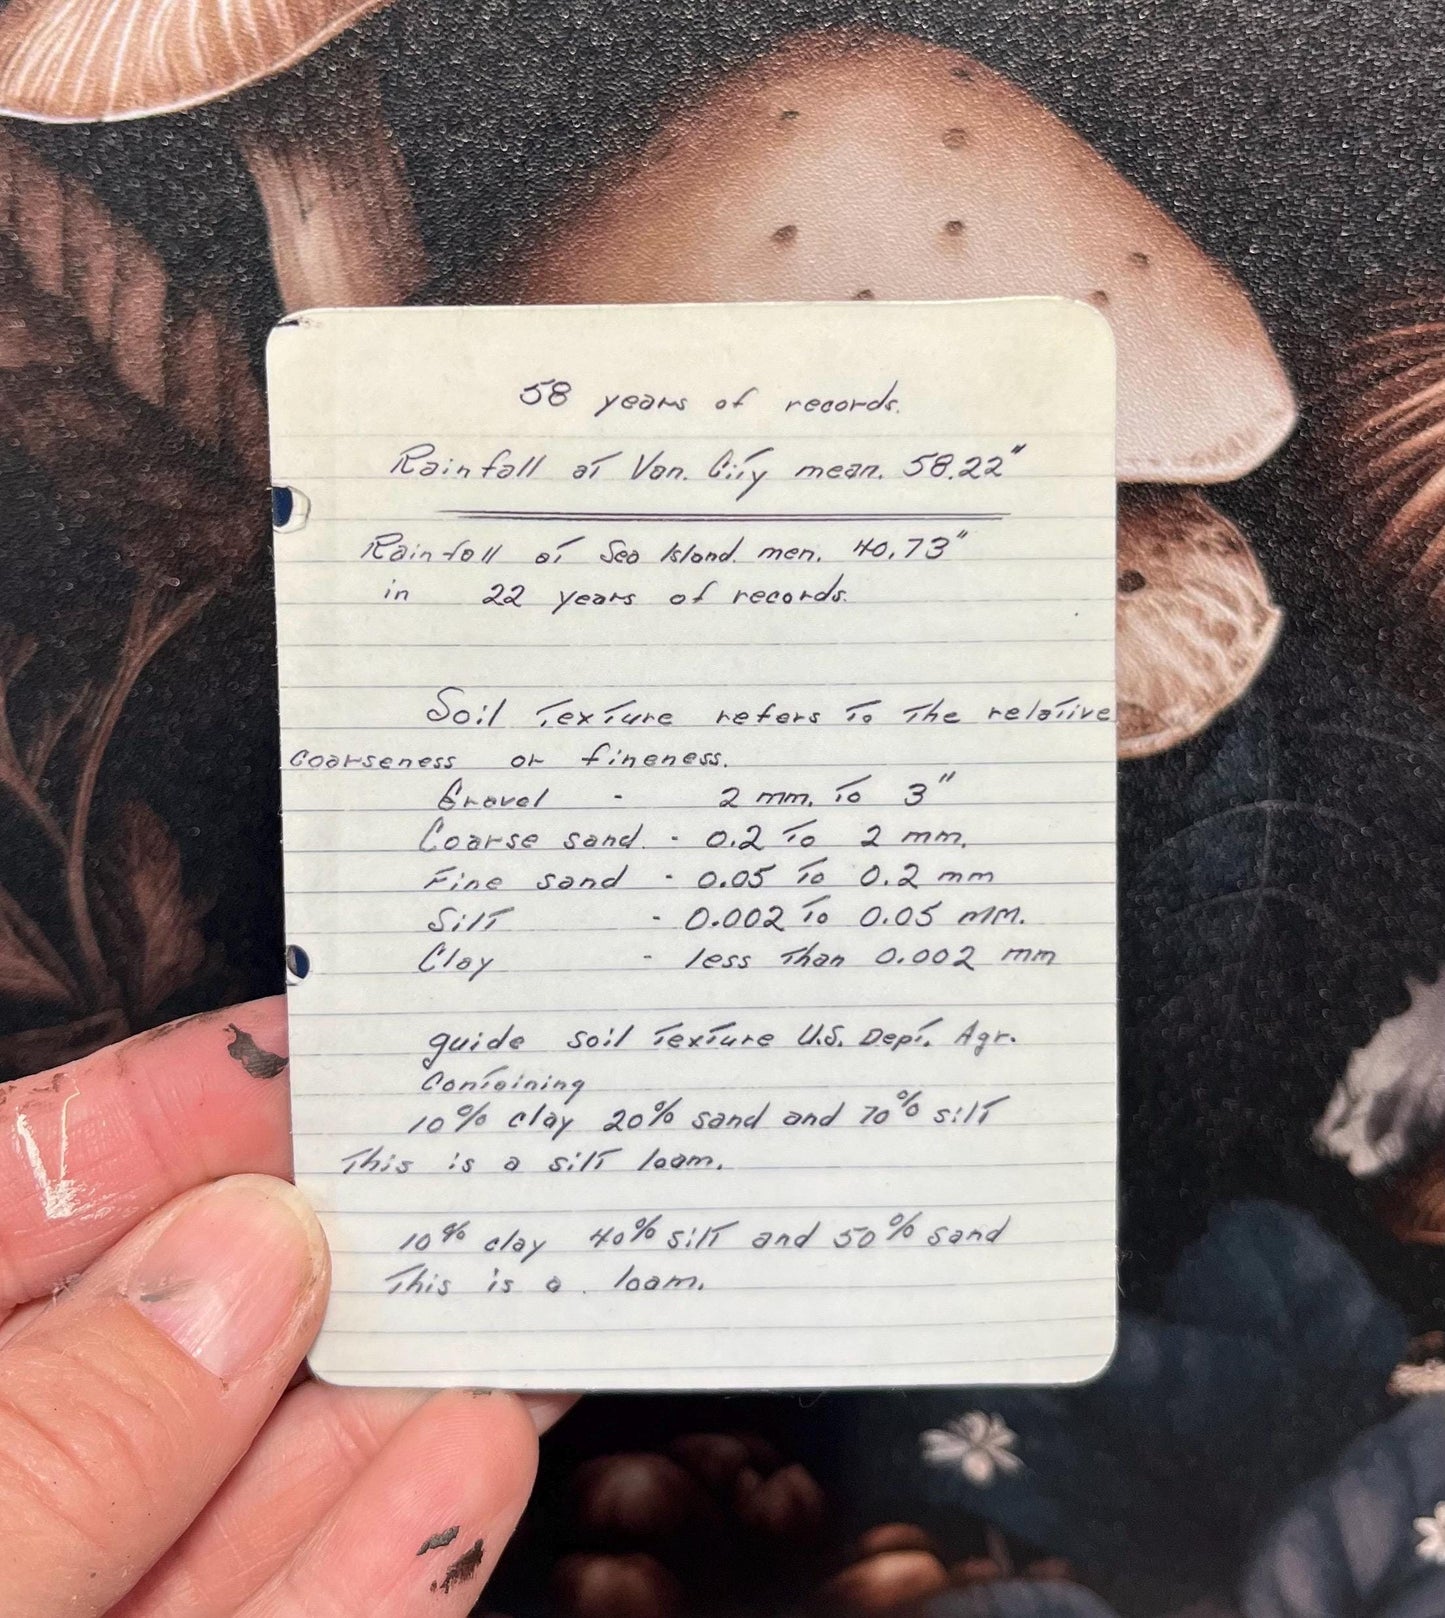 58 years of records.
Rainfall at Van. City mean. 58.22"
Rainfall at Sea Island. men. 40.73"
in 22 years of records.
Soil Texture refers to the relative
coarseness or fineness.
Gravel - 2 mm. to 3"
Coarse sand. - 0.2 to 2 mm.
Fine sand - 0.05 to 0.2 mm
Silt - 0.002 to 0.05 mm.
Clay - less than 0.002 mm
guide soil texture U.S. Dept. Agr.
Containing
10% clay 20% sand and 70% silt
This is a silt loam.
10% clay 40% silt and 50% sand
This is a loam.